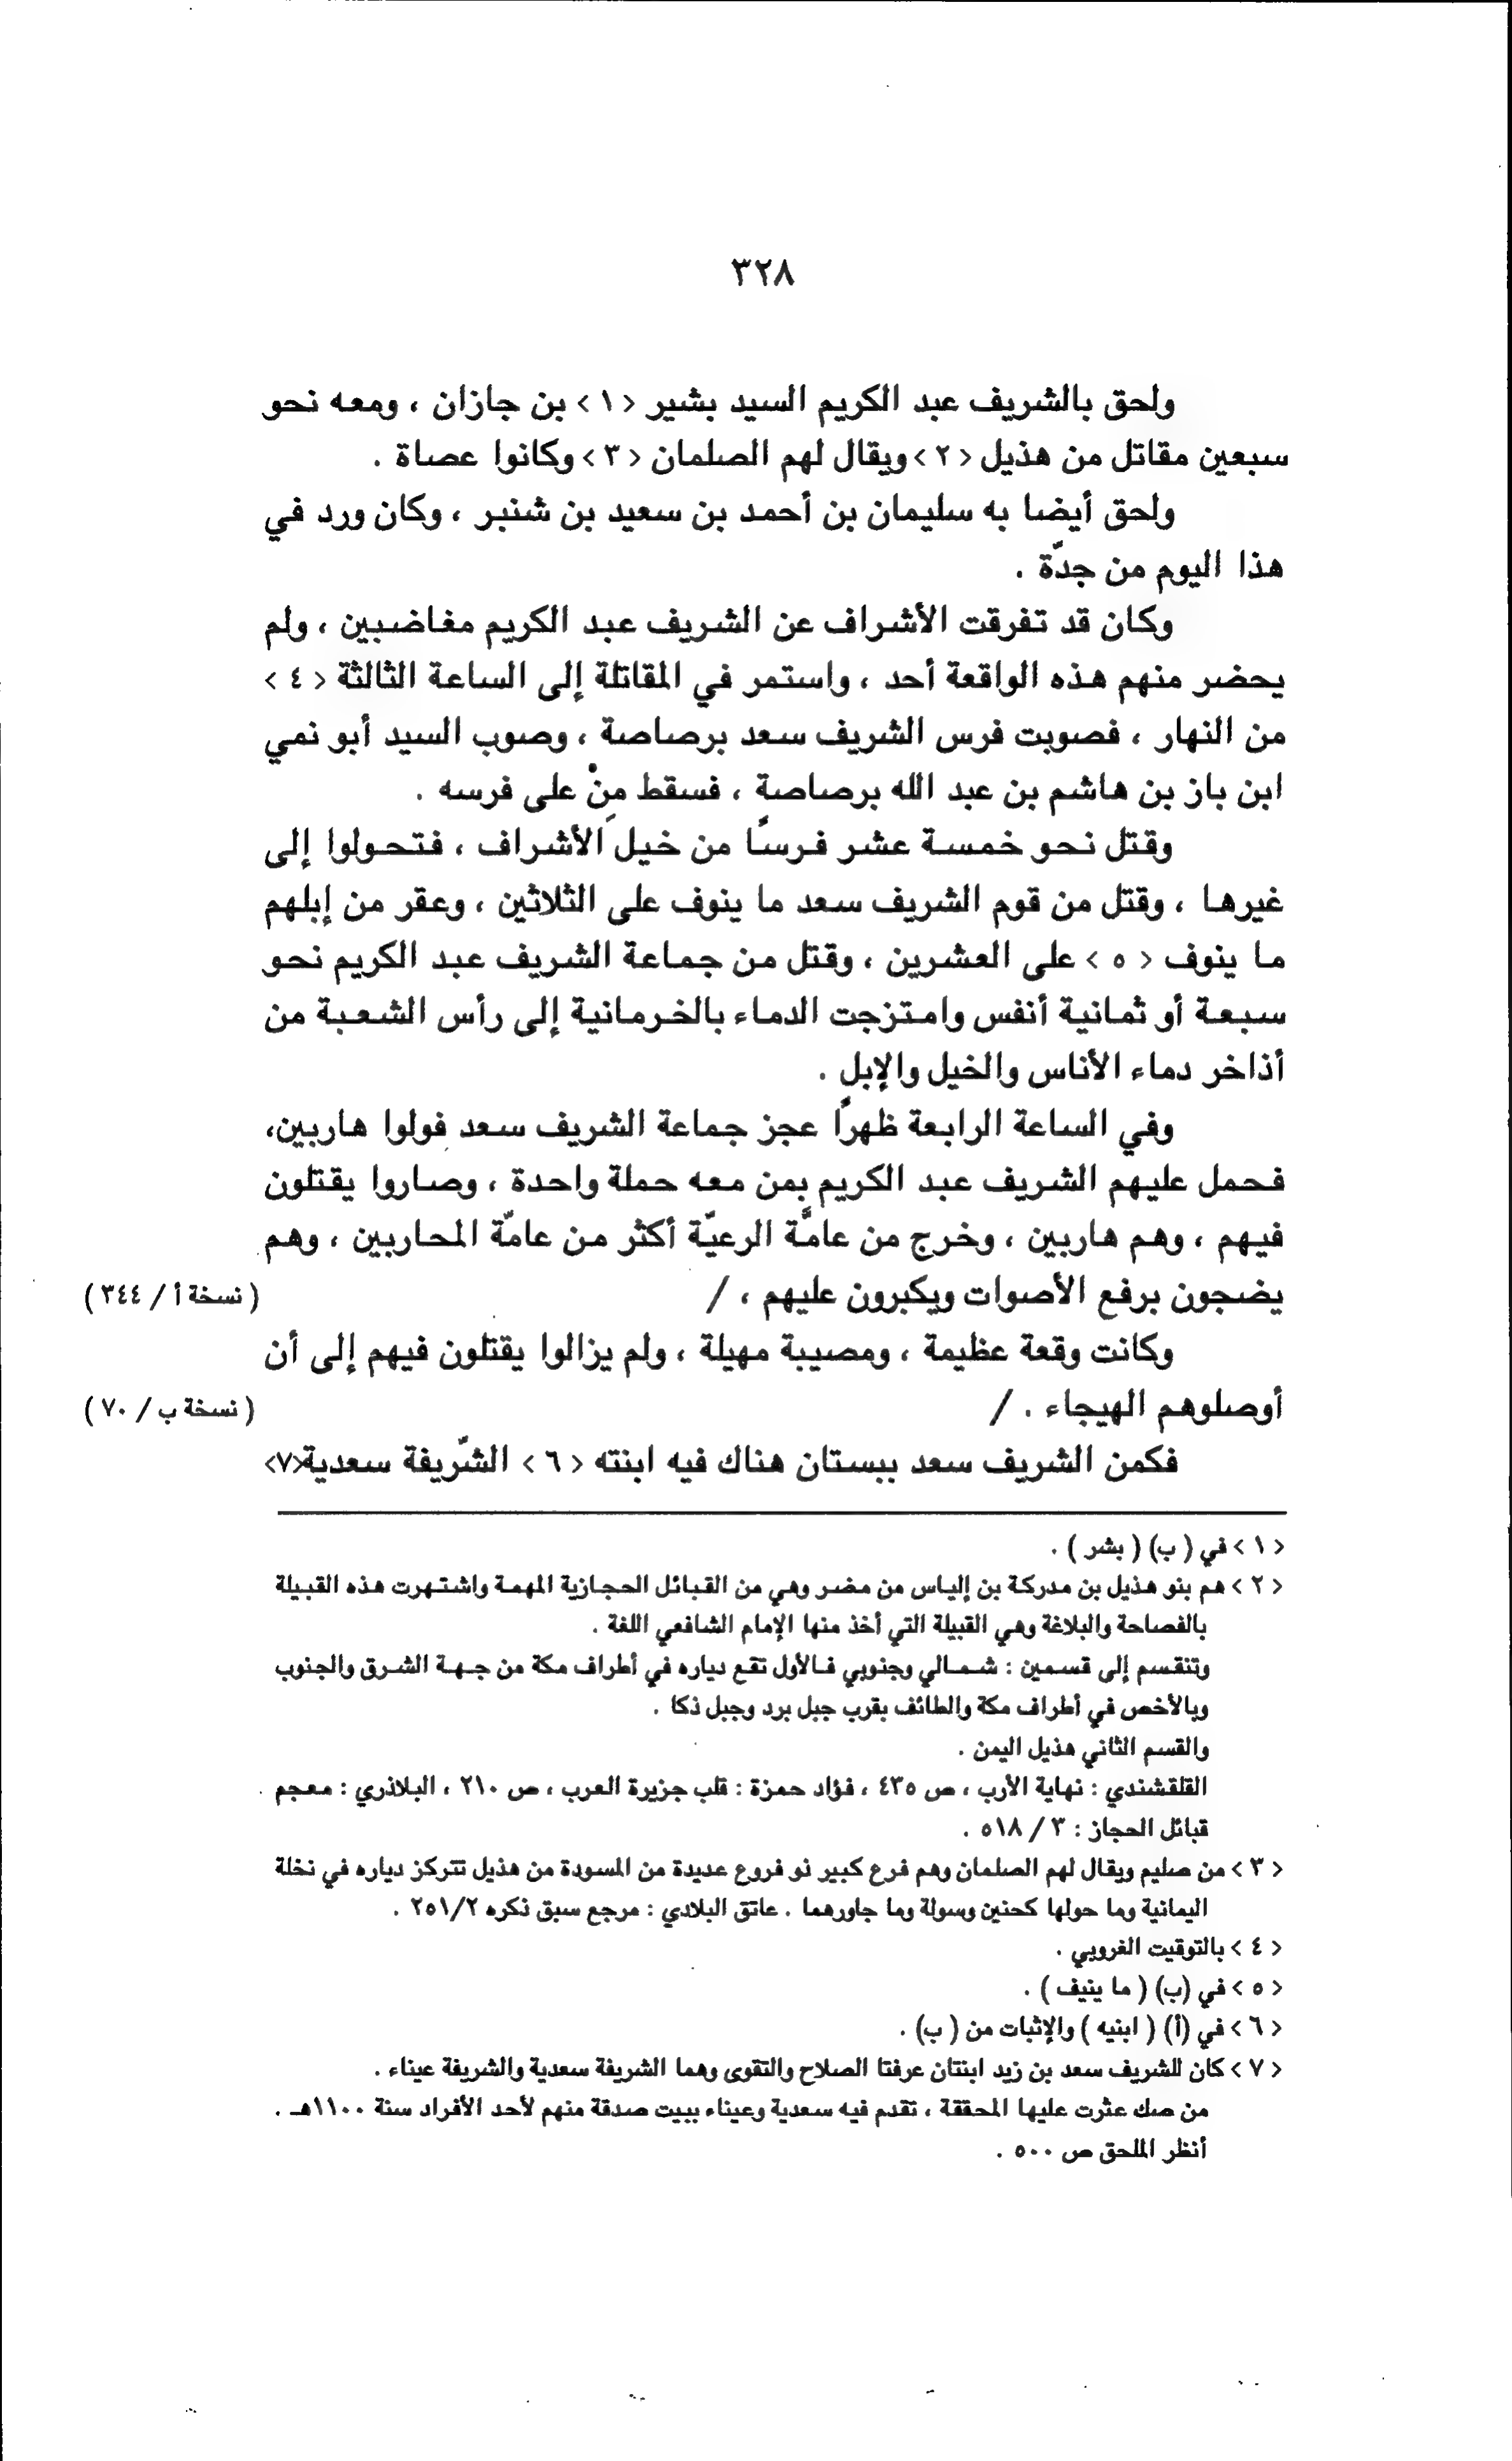 ٣٢٨
ولحق بالشريف عبد الكريم السيد بشير < ١ > بن جازان ، ومعه نحو
سبعين مقاتل من هذيل < ٢ > ويقال لهم الصلمان < ٣ > وكانوا عصاة .
ولحق أيضا به سليمان بن أحمد بن سعيد بن شنبر ، وكان ورد في
هذا اليوم من جدّة .
وكان قد تفرقت الأشراف عن الشريف عبد الكريم مغاضبين ، ولم
يحضر منهم هذه الواقعة أحد ، واستمر في المقاتلة إلى الساعة الثالثة < ٤ >
من النهار ، فصوبت فرس الشريف سعد برصاصة ، وصوب السيد أبو نمي
ابن باز بن هاشم بن عبد الله برصاصة ، فسقط مِنْ على فرسه .
وقتل نحو خمسة عشر فرسًا من خيل الأشراف ، فتحولوا إلى
غيرها ، وقتل من قوم الشريف سعد ما ينوف على الثلاثين ، وعقر من إبلهم
ما ينوف < ٥ > على العشرين ، وقتل من جماعة الشريف عبد الكريم نحو
سبعة أو ثمانية أنفس وامتزجت الدماء بالخرمانية إلى رأس الشعبة من
أذاخر دماء الأناس والخيل والإبل .
وفي الساعة الرابعة ظهرًا عجز جماعة الشريف سعد فولوا هاربين،
فحمل عليهم الشريف عبد الكريم بمن معه حملة واحدة ، وصاروا يقتلون
فيهم ، وهم هاربين ، وخرج من عامَّة الرعيّة أكثر من عامّة المحاربين ، وهم
يضجون برفع الأصوات ويكبرون عليهم ، / ( نسخة أ / ٣٤٤ )
وكانت وقعة عظيمة ، ومصيبة مهيلة ، ولم يزالوا يقتلون فيهم إلى أن
أوصلوهم الهيجاء . / ( نسخة ب / ٧٠ )
فكمن الشريف سعد ببستان هناك فيه ابنته < ٦ > الشّريفة سعدية<٧>
< ١ > في ( ب) ( بشر ) .
< ٢ > هم بنو هذيل بن مدركة بن إلياس من مضر وهي من القبائل الحجازية المهمة واشتهرت هذه القبيلة
بالفصاحة والبلاغة وهي القبيلة التي أخذ منها الإمام الشافعي اللغة .
وتنقسم إلى قسمين : شمالي وجنوبي فالأول تقع دياره في أطراف مكة من جهة الشرق والجنوب
وبالأخص في أطراف مكة والطائف بقرب جبل برد وجبل ذكا .
والقسم الثاني هذيل اليمن .
القلقشندي : نهاية الأرب ، ص ٤٣٥ ، فؤاد حمزة : قلب جزيرة العرب ، ص ٢١٠ ، البلاذري : معجم
قبائل الحجاز : ٣ / ٥١٨ .
< ٣ > من صليم ويقال لهم الصلمان وهم فرع كبير نو فروع عديدة من المسودة من هذيل تتركز دياره في نخلة
اليمانية وما حولها كحنين وسولة وما جاورهما . عاتق البلادي : مرجع سبق ذكره ٢٥١/٢ .
< ٤ > بالتوقيت الغروبي .
< ٥ > في (ب) ( ما ينيف ) .
< ٦ > في (أ) ( ابنيه ) والإثبات من ( ب) .
< ٧ > كان للشريف سعد بن زيد ابنتان عرفتا الصلاح والتقوى وهما الشريفة سعدية والشريفة عيناء .
من صك عثرت عليها المحققة ، تقدم فيه سعدية وعيناء ببيت صدقة منهم لأحد الأفراد سنة ١١٠٠هـ .
أنظر الملحق ص ٥٠٠ .